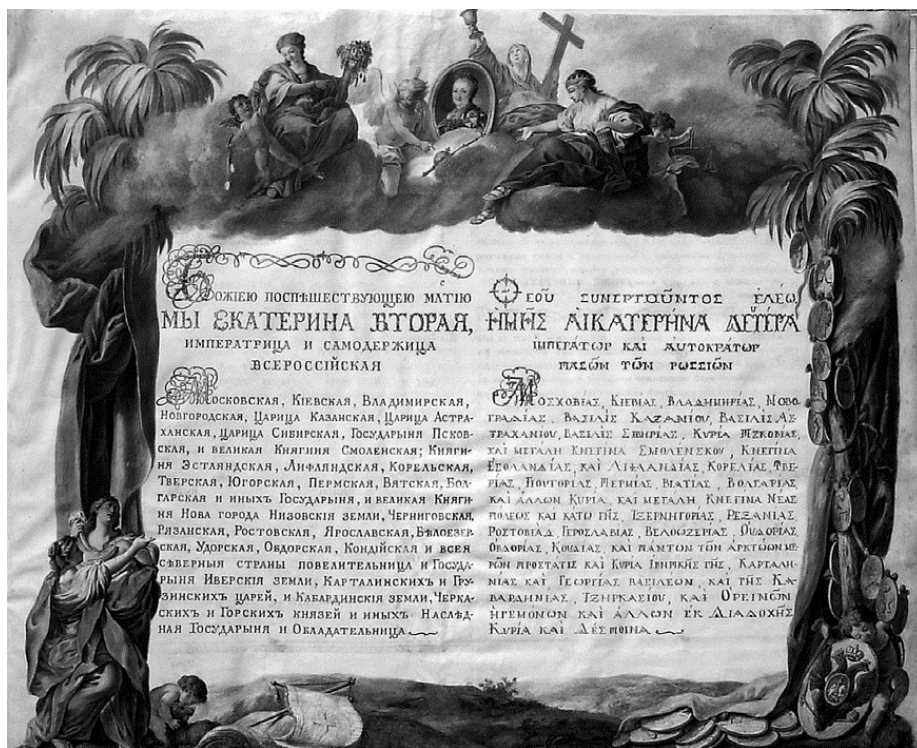 БОЖІЕЮ ПОСПѢШЕСТВУЮЩЕЮ МЛТІЮ
МЫ ЕКАТЕРИНА ВТОРАЯ,
ИМПЕРАТРИЦА И САМОДЕРЖИЦА
ВСЕРОССІЙСКАЯ
МОСКОВСКАЯ, КІЕВСКАЯ, ВЛАДИМИРСКАЯ,
НОВГОРОДСКАЯ, ЦАРИЦА КАЗАНСКАЯ, ЦАРИЦА АСТРА-
ХАНСКАЯ, ЦАРИЦА СИБИРСКАЯ, ГОСУДАРЫНЯ ПСКОВ-
СКАЯ, И ВЕЛИКАЯ КНЯГИНЯ СМОЛЕНСКАЯ; КНЯГИ-
НЯ ЭСТЛЯНДСКАЯ, ЛИФЛЯНДСКАЯ, КОРЕЛЬСКАЯ,
ТВЕРСКАЯ, ЮГОРСКАЯ, ПЕРМСКАЯ, ВЯТСКАЯ, БОЛ-
ГАРСКАЯ И ИНЫХЪ ГОСУДАРЫНЯ, И ВЕЛИКАЯ КНЯГИ-
НЯ НОВА ГОРОДА НИЗОВСКІЯ ЗЕМЛИ, ЧЕРНИГОВСКАЯ,
РЯЗАНСКАЯ, РОСТОВСКАЯ, ЯРОСЛАВСКАЯ, БѢЛООЗЕР-
СКАЯ, УДОРСКАЯ, ОБДОРСКАЯ, КОНДІЙСКАЯ И ВСЕЯ
СѢВЕРНЫЯ СТРАНЫ ПОВЕЛИТЕЛЬНИЦА И ГОСУДА-
РЫНЯ ИВЕРСКІЯ ЗЕМЛИ, КАРТАЛИНСКИХЪ И ГРУ-
ЗИНСКИХЪ ЦАРЕЙ, И КАБАРДИНСКІЯ ЗЕМЛИ, ЧЕРКА-
СКИХЪ И ГОРСКИХЪ КНЯЗЕЙ И ИНЫХЪ НАСЛѢД-
НАЯ ГОСУДАРЫНЯ И ОБЛАДАТЕЛЬНИЦА
ΘΕΟΥ͂ ΣΥΝΕΡΓΟΥ͂ΝΤΟΣ ἘΛΈΩ,
ἩΜΗ͂Σ ΑἸΚΑΤΕΡΉΝΑ ΔΕΥ̓ΤΈΡΑ
ἸΜΠΕΡΆΤΩΡ ΚΑῚ ΑΥ̓ΤΟΚΡΆΤΩΡ
ΠΑΣΩ͂Ν ΤΩ͂Ν ΡΩΣΣΙΩ͂Ν
ΜΟΣΧΟΒΊΑΣ, ΚΙΕΒΊΑΣ, ΒΛΑΔΗΜΗΡΊΑΣ, ΝΟΒΟ-
ΓΡΑΔΊΑΣ, ΒΑΣΙΛῚΣ ΚΑΖΑΝΊΟΥ, ΒΑΣΙΛῚΣ ἈΣ-
ΤΡΑΧΑΝΊΟΥ, ΒΑΣΙΛῚΣ ΣΙΒΗΡΊΑΣ, ΚΥΡΊΑ ΠΣΚΟΒΊΑΣ,
ΚΑῚ ΜΕΓΆΛΗ ΚΝΕΓΊΝΑ ΣΜΟΛΈΝΣΚΟΥ, ΚΝΕΓΊΝΑ
ἘΣΘΛΑΝΔΊΑΣ, ΚΑῚ ΛΙΦΛΑΝΔΊΑΣ, ΚΟΡΕΛΊΑΣ, ΤΒΕ-
ΡΊΑΣ, ἸΟΥΓΟΡΊΑΣ, ΠΕΡΜΊΑΣ, ΒΙΑΤΊΑΣ, ΒΟΛΓΑΡΊΑΣ
ΚΑῚ ἌΛΛΩΝ ΚΥΡΊΑ, ΚΑῚ ΜΕΓΆΛΗ ΚΝΕΓΊΝΑ ΝΈΑΣ
ΠΌΛΕΩΣ ΚΑῚ ΚΆΤΩ ΓΗ͂Σ, ΤΖΕΡΝΗΓΟΡΊΑΣ, ΡΕΖΑΝΊΑΣ,
ΡΟΣΤΟΒΊΑΣ, ΓΕΡΟΣΛΑΒΊΑΣ, ΒΕΛΟΩΖΕΡΊΑΣ, ΟΥ̓ΔΟΡΊΑΣ,
ὈΒΔΟΡΊΑΣ, ΚΟΝΔΊΑΣ, ΚΑῚ ΠΆΝΤΩΝ ΤΩ͂Ν ἈΡΚΤΏΩΝ ΜΕ-
ΡΩ͂Ν ΠΡΟΣΤΆΤΙΣ ΚΑῚ ΚΥΡΊΑ ἸΒΗΡΙΚΗ͂Σ ΓΗ͂Σ, ΚΑΡΤΑΛΗ-
ΝΊΑΣ ΚΑῚ ΓΕΩΡΓΊΑΣ ΒΑΣΙΛΈΩΝ, ΚΑῚ ΓΗ͂Σ ΚΑ-
ΒΑΡΔΗΝΊΑΣ, ΤΖΗΡΚΑΣΊΟΥ, ΚΑῚ ὈΡΕΙΝΩ͂Ν
ἩΓΕΜΌΝΩΝ ΚΑῚ ἌΛΛΩΝ ἘΚ ΔΙΑΔΟΧΗ͂Σ
ΚΥΡΊΑ ΚΑῚ ΔΈΣΠΟΙΝΑ